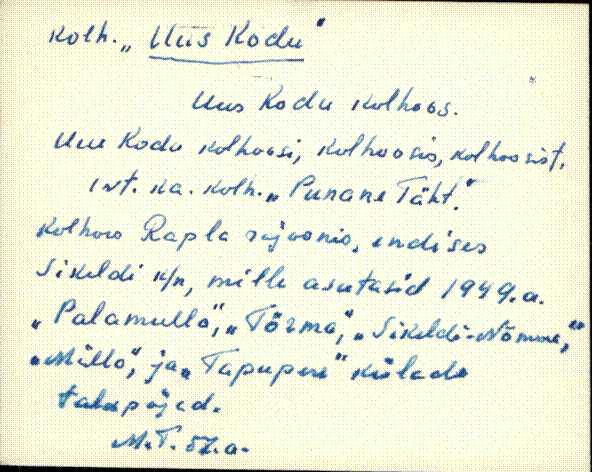 Kolh. „Uus Kodu"
Uus Kodu kolhoos.
Uue Kodu kolhoosi, kolhoosis, kolhoosist.
Vt. ka. kolh. „Punane Täht."
Kolhoos Rapla rajoonis, endises
Sikeldi k/n, mille asutasid 1949.a.
„Palamulla", „Tõrma", „Sikeldi-Nõmme,"
„Milla", ja „Tapupere" külade
talupojad.
M.T. 57.a.